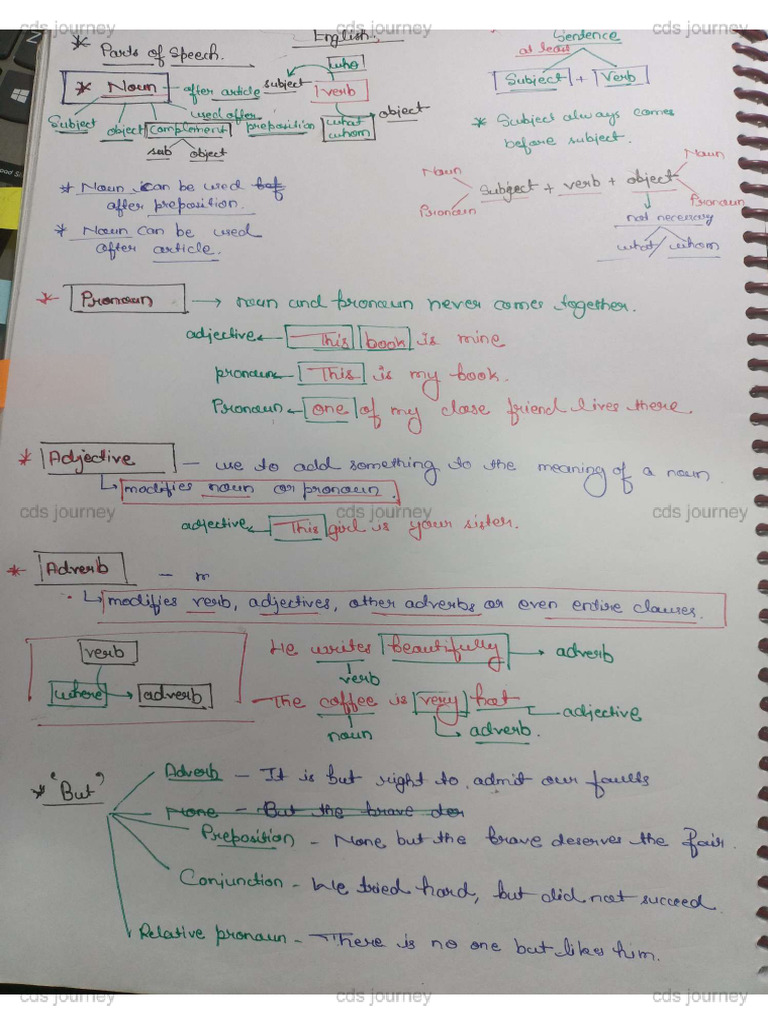 cds journey cds journey cds journey
English.
* Parts of Speech.
* Noun — after article
used after preposition
Subject object complement
sub object
who
subject verb object
what
whom
Sentence
at least
Subject + Verb
* Subject always comes
before subject.
Noun Noun
Subject + verb + object
Pronoun Pronoun
not necessary
what/whom
* Noun is can be used bef
after preposition.
* Noun can be used
after article.
* Pronoun → noun and pronoun never comes together.
adjective ← This book is mine
pronoun ← This is my book.
Pronoun ← one of my close friend lives there.
* Adjective — use to add something to the meaning of a noun.
↳ modifies noun or pronoun.
cds journey cds journey cds journey
adjective ← This girl is your sister.
* Adverb — m
• ↳ modifies verb, adjectives, other adverbs or even entire clauses.
verb
where → adverb
He writes beautifully → adverb
verb
The coffee is very hot → adjective
noun ↳ adverb.
* "But"
Adverb — It is but right to admit our faults
None — But the brave des
Preposition — None but the brave deserves the fair.
Conjunction — We tried hard, but did not succeed
Relative pronoun — There is no one but likes him.
cds journey cds journey cds journey